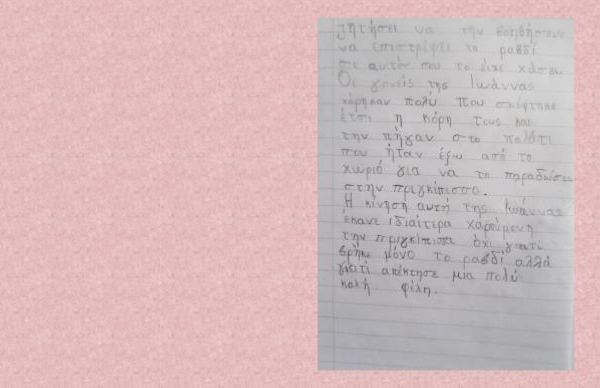 ζητήσει να την βοηθήσουν
να επιστρέψει το ραβδί
σε αυτόν που το είχε χάσει.
Οι γονείς της Ιωάννας
χάρηκαν πολύ που σκέφτηκε
έτσι η κόρη τους και
την πήγαν στο παλάτι
που ήταν έξω από το
χωριό για να το παραδώσει
στην πριγκίπισσα.
Η κίνηση αυτή της Ιωάννας
έκανε ιδιαίτερα χαρούμενη
την πριγκίπισα όχι γιατί
βρήκε μόνο το ραβδί αλλά
γιατί απέκτησε μια πολύ
καλή φίλη.